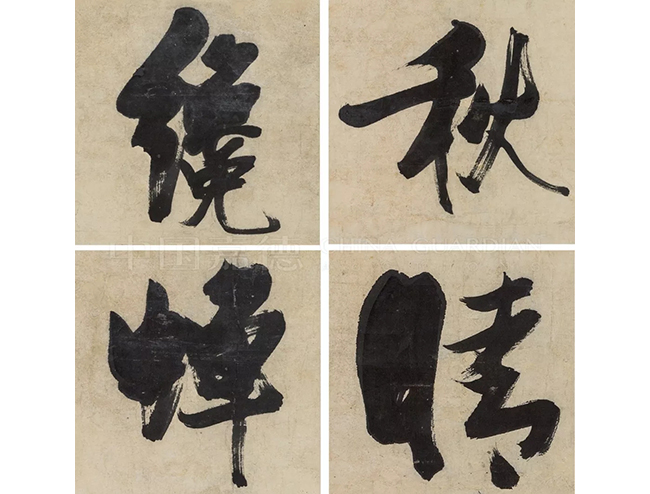 秋
晴
纔
中国嘉德 CHINA GUARDIAN